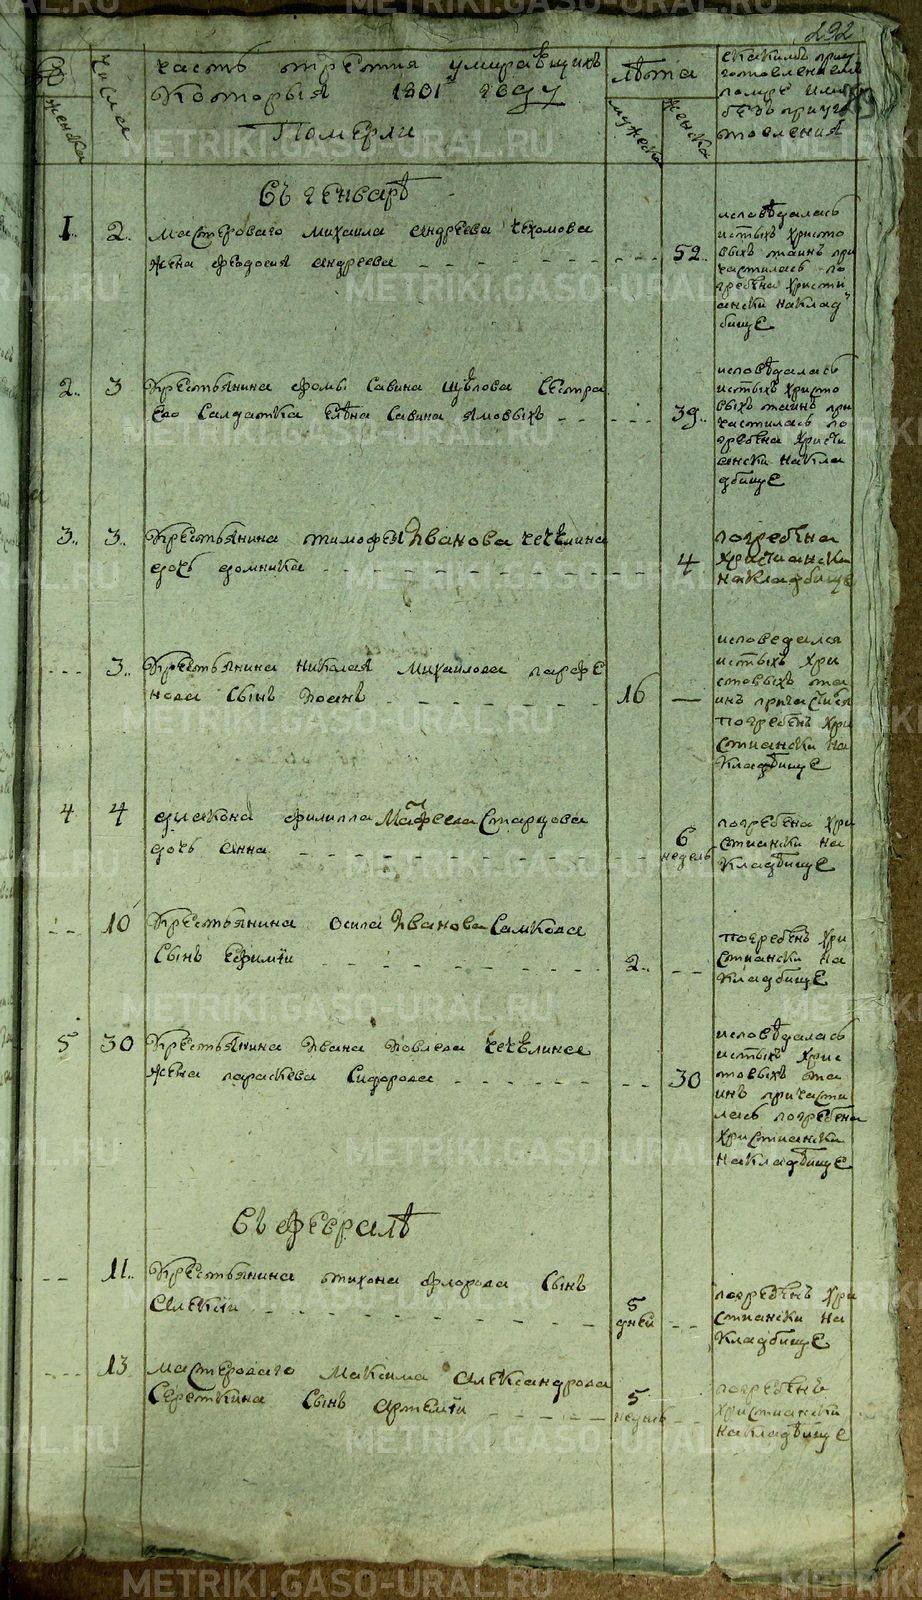 292
часть третия умиравшихъ
Которыя 1801 году
Померли
числа
женска
лѣта
мужеска
женска
скакимъ приу
готовлениемъ
помре или
безъ приуго
товления
Съ генварѣ
1. 2. мастероваго михаила андреева чехомова
жена феодосия андреева 52.
исповѣдалась
истыхъ христо
выхъ таинъ при
частилась по
гребена христи
ански наклад
бище
2. 3 Крестьянина фомы савина щѣлова сестра
его салдатка елѣна савина ямовыхъ 39.
исповѣдалась
истыхъ христо
выхъ таинъ при
частилась по
гребена христи
ански накла
дбище
3. 3. Крестьянина тимофея Иванова чечѣлина
дочь домника 4
погребена
христиански
накладбище
3. Крестьянина николая михаилова парфе
нова сынъ Иоанъ 16
исповедался
истыхъ хри
стовыхъ та
инъ причастися
погребенъ хри
стиански на
кладбище
4 4 диакона филиппа Матфеева Старцова
дочь анна 6
недель
погребена хри
стиански на
кладбище
10 Крестьянина осипа Иванова Самкова
сынъ ефимїи 2.
погребенъ хри
стиански на
кладбище
5 30 Крестьянина Ивана Иовлева чечѣлина
жена параскева Сидорова 30
исповѣдалась
истыхъ хрис
товыхъ та
инъ причасти
лась погребена
христиански
накладбище
Съ февралѣ
11. Крестьянина тихона флорова сынъ
алексїи 5
дней
погребенъ хри
стиански на
кладбище
13 мастероваго максима александрова
Середкина сынъ артемїи 5
недель
погребенъ
христиански
накладбище
METRIKI.GASO-URAL.RU